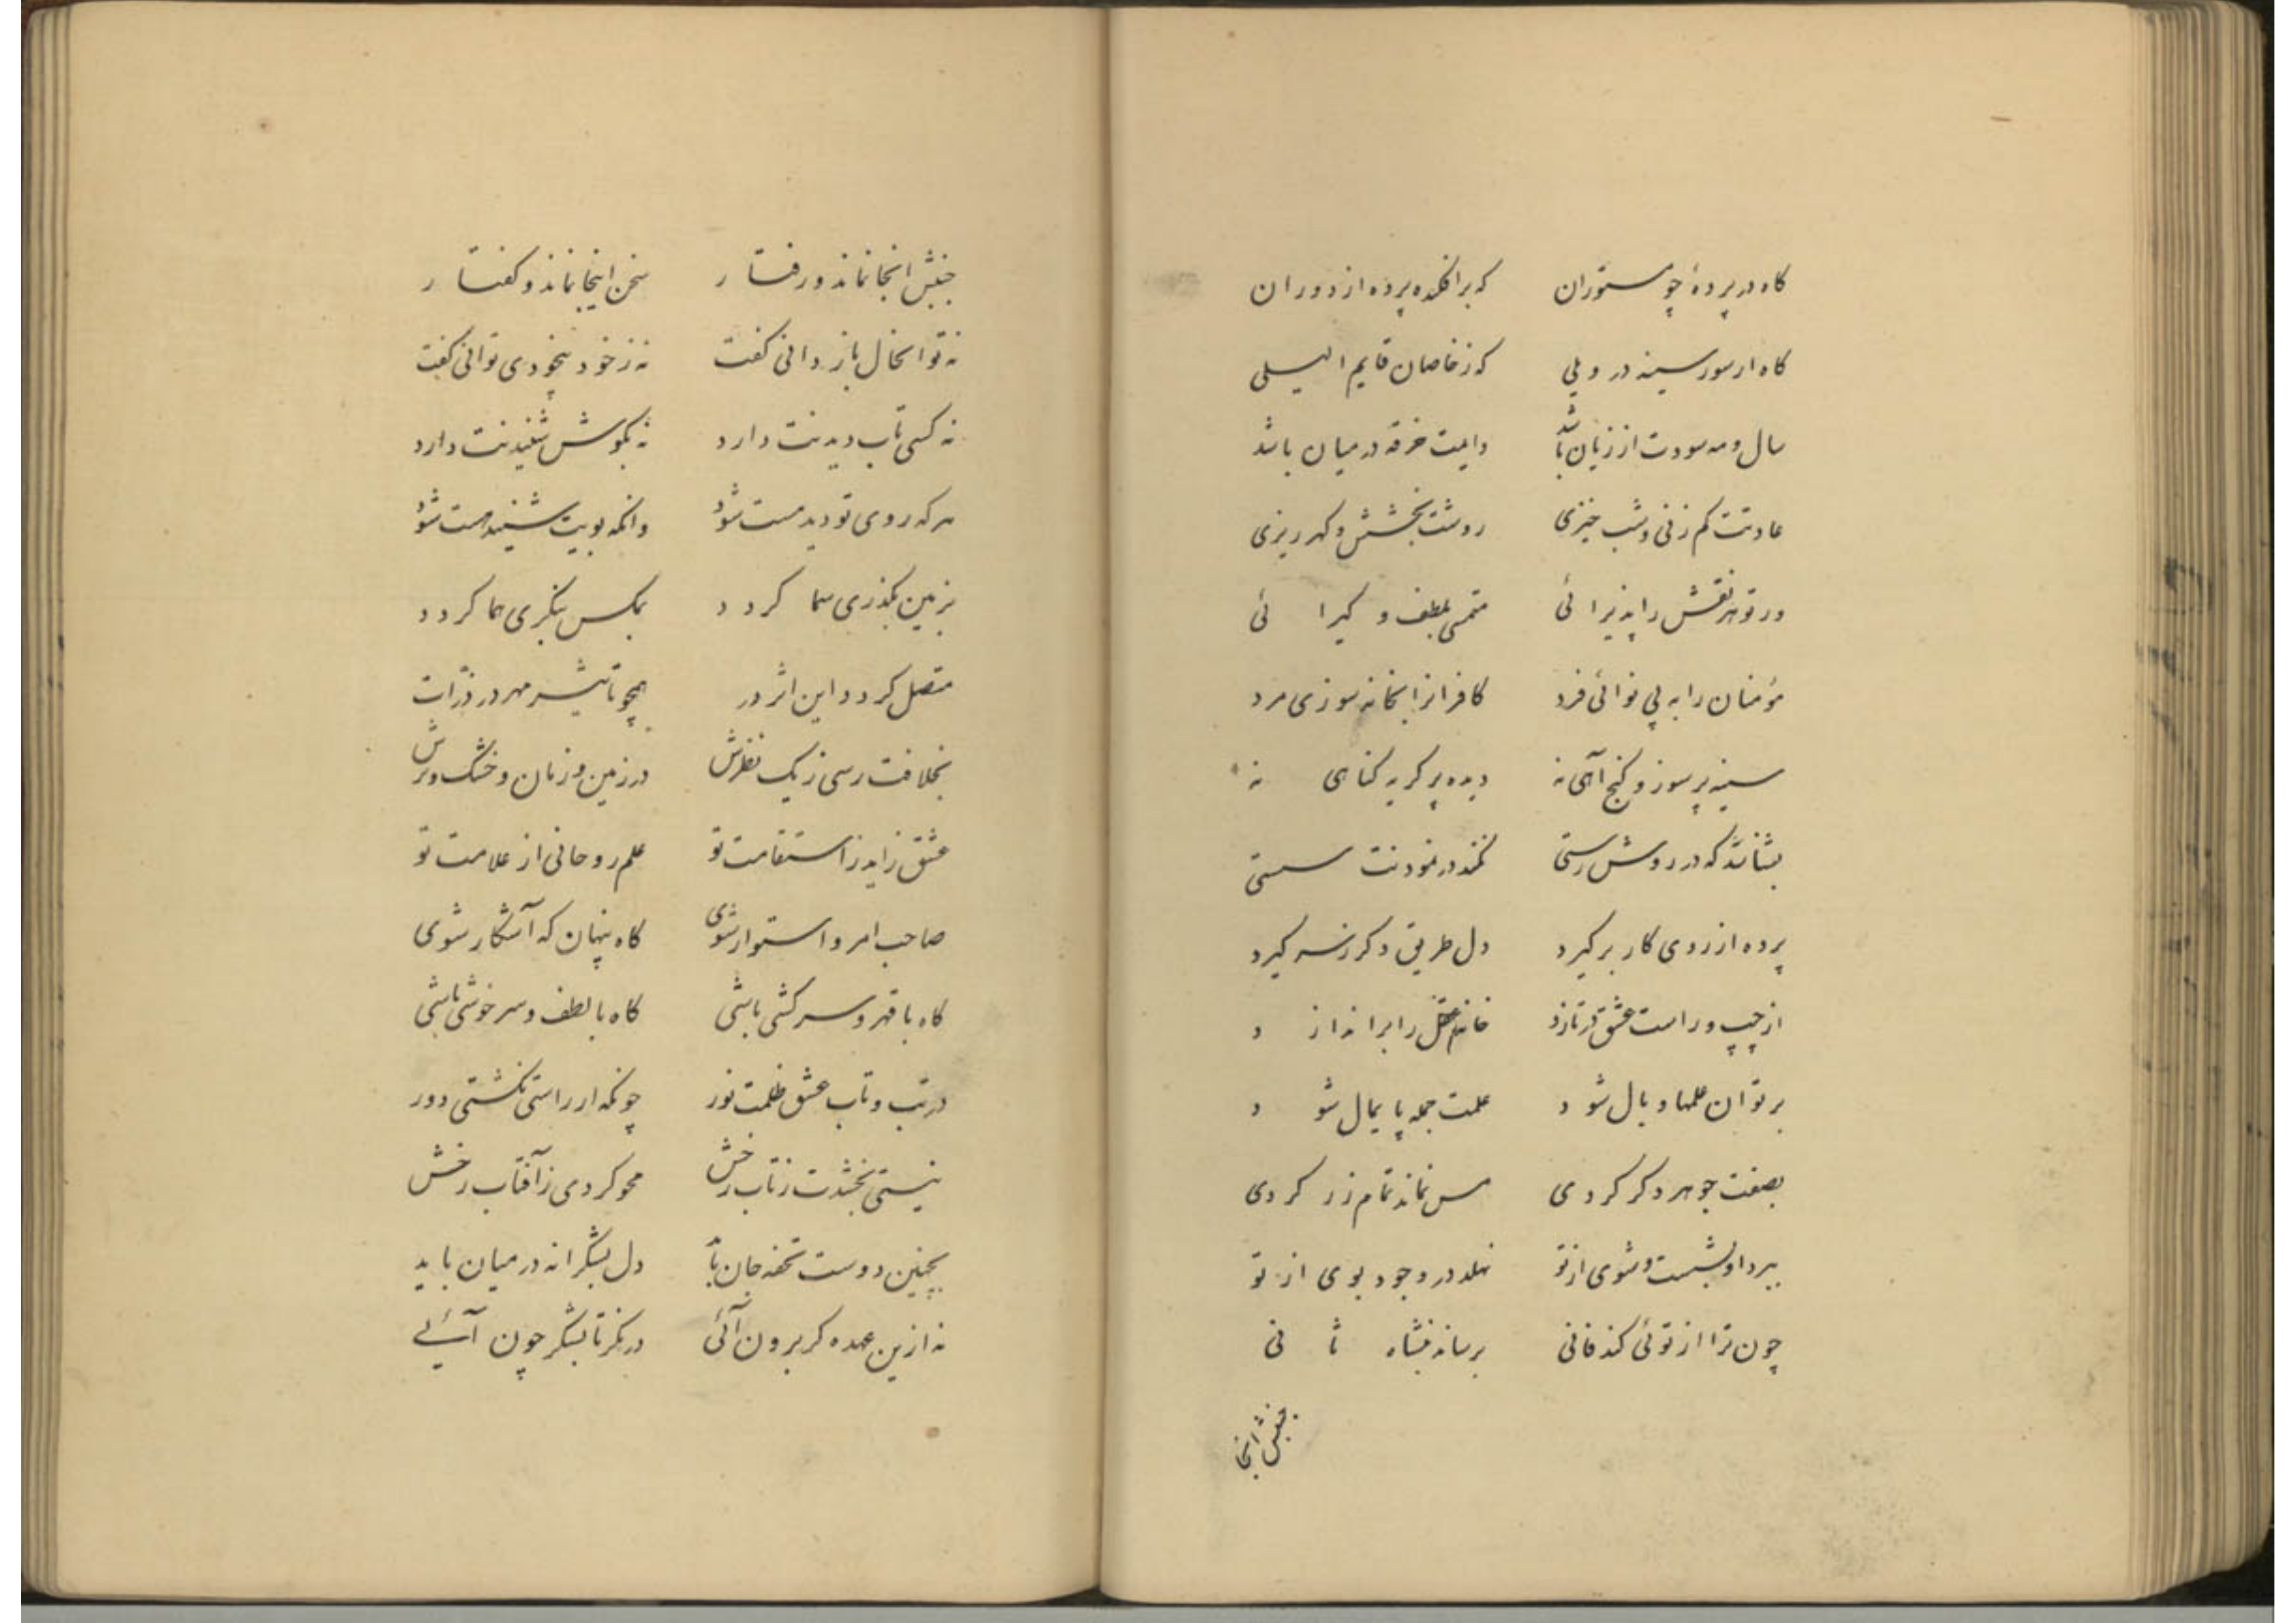 کاه در پردهٔ چو مستوران که برافکنده پرده از دوران
کاه از سور سینه در ویلی که ز خاصان قایم اللیلی
سال و مه سودت از زیان باشد دایمت خرقه در میان باشد
عادتت کم زنی و شب خیزی روشت بخشش و کهر ریزی
در تو هر نقش را پذیرائی متمسی بلطف و کیرائی
مؤمنان را به پی نوائی فرد کافرانرا بخانه سوزی مرد
سینه پر سوز و کنج آهی نه دیده پر کریه کناهی نه
بشناشد که در روش رستی نکند در نمودنت سستی
پرده از روی کار برکیرد دل طریق دکر ز سر کیرد
از چپ و راست عشق در تازد خانه عقل را براندازد
بر تو آن علمها وبال شود علمت جمله پایمال شود
بصفت جوهر دکر کردی مس نماند تمام زر کردی
ببرد او بشست و شوی از تو نهلد در وجود بوی از تو
چون ترا از توئی کند فانی برساند بنشاه ثانی
جنبش انجا
جنبش انجا نماند و رفتار سخن اینجا نماند و کفتار
نه تو انحال باز دانی کفت نه ز خود بیخودی توانی کفت
نه کسی تاب دیدنت دارد نه بکوش شنیدنت دارد
هر که روی تو دید مست شود وانکه بویت شنید مست شود
بزمین بکذری سما کردد بمکس بنکری هما کردد
متصل کردد این اثر در همچو تاثیر مهر در ذرات
بخلافت رسی ز یک نظرش در زمین و زمان و خشک و ترش
عشق زاید ز استقامت تو علم روحانی از علامت تو
صاحب امر و استوار شوی کاه پنهان که آشکار شوی
کاه با قهر و سرکشی باشی کاه با لطف و سرخوشی باشی
در تب و تاب عشق ظلمت نور چونکه از راستی نکشتی دور
نیستی بخشدت ز تاب رخش محو کردی ز آفتاب رخش
بچنین دوست تحفه جان باید دل بشکرانه در میان باید
نه ازین عهده کر برون آئی در نکر تا بشکر چون آئی